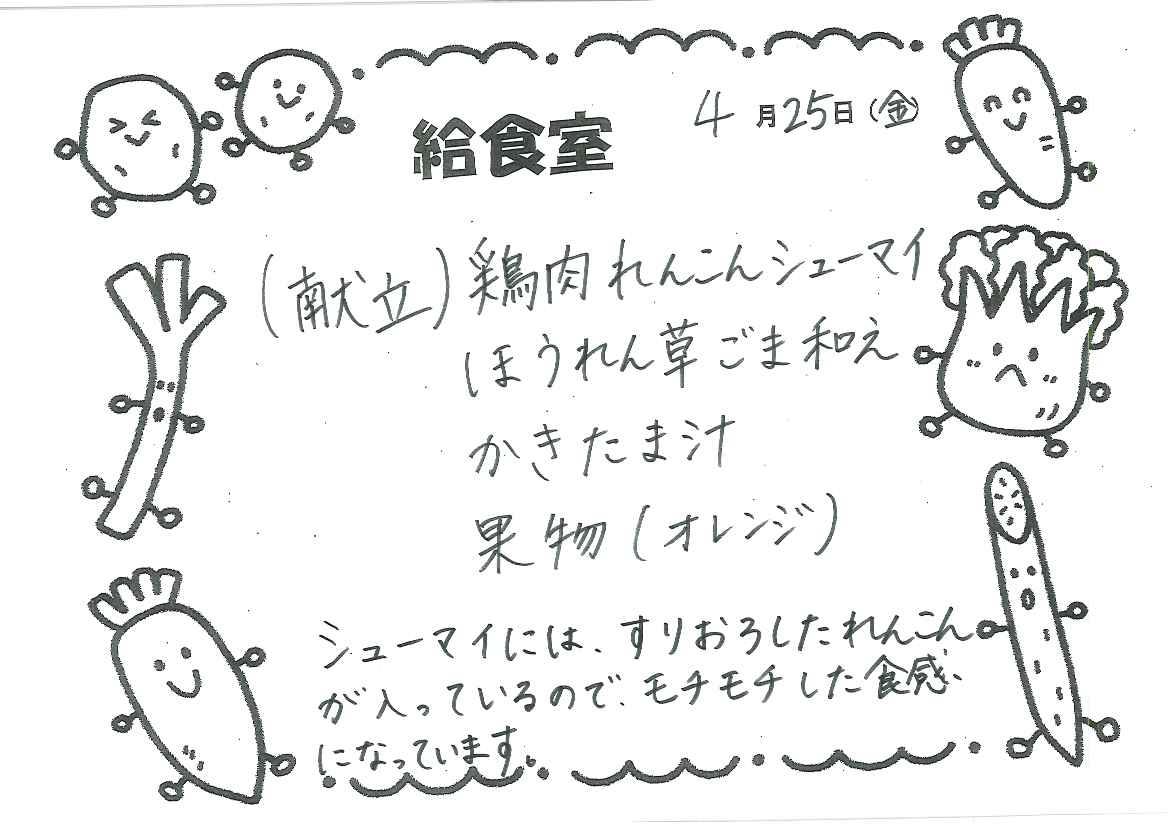 給食室
4月25日(金)
(献立)鶏肉れんこんシューマイ
ほうれん草ごま和え
かきたま汁
果物(オレンジ)
シューマイには、すりおろしたれんこん
が入っているので、モチモチした食感、
になっています。